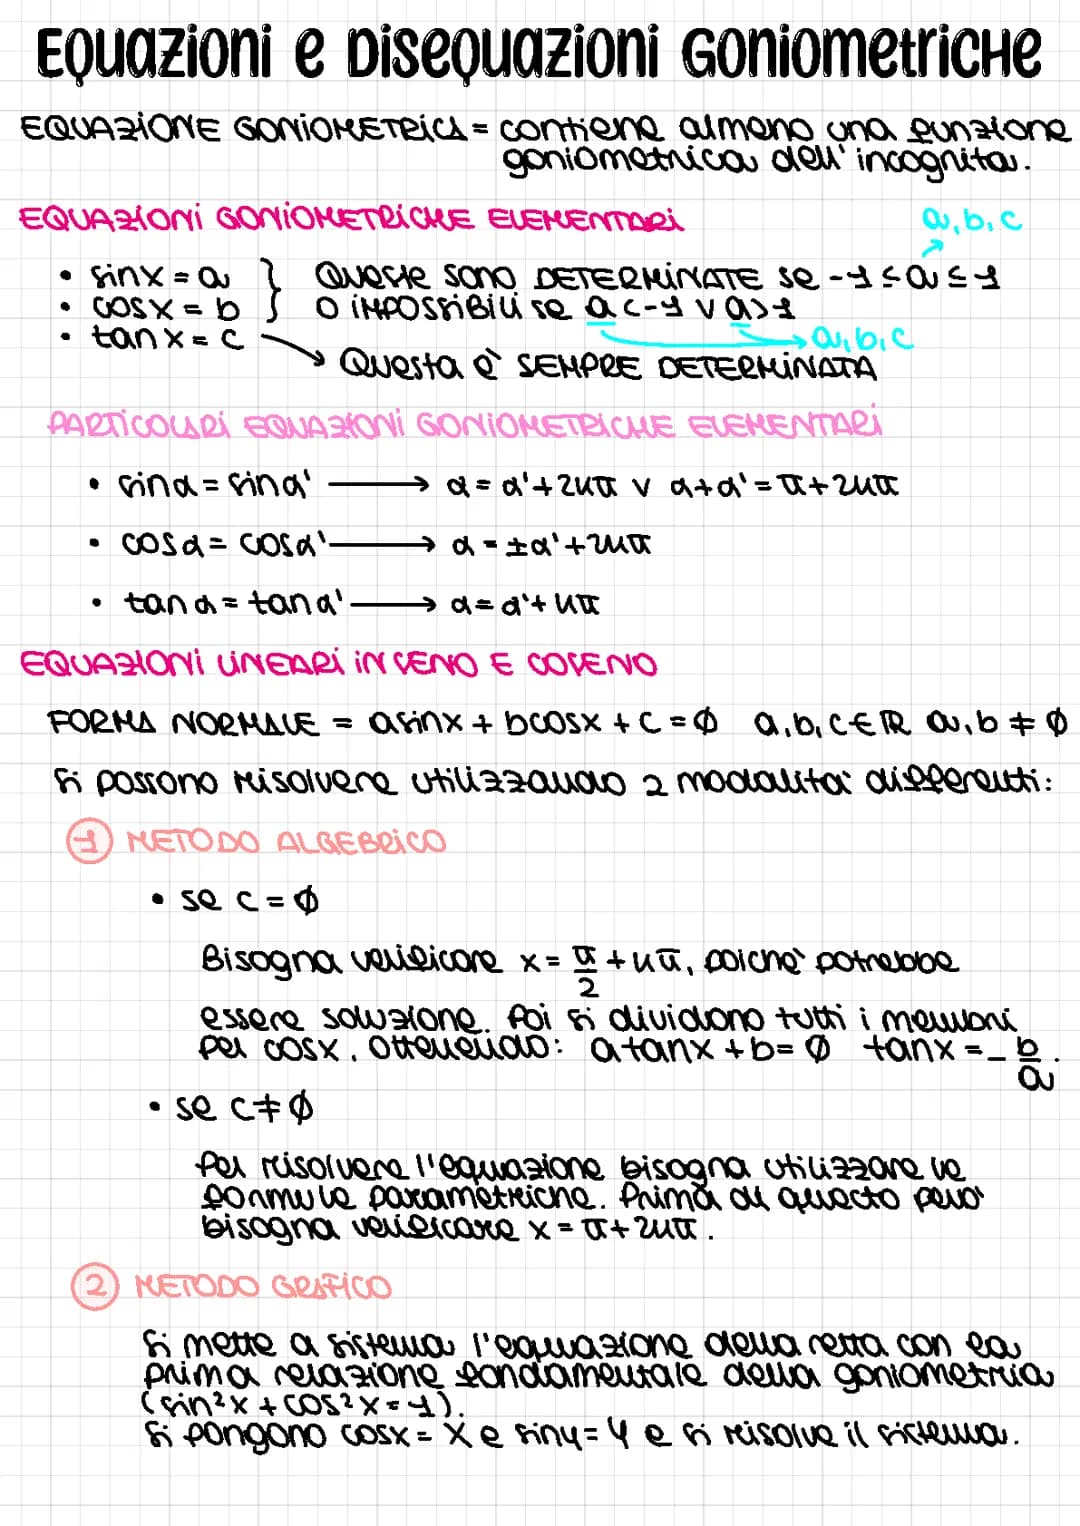 Equazioni e Disequazioni Goniometriche
EQUAZIONE GONIOMETRICA = contiene almeno una funzione
goniometrica dell'incognita.
EQUAZIONI GONIOMETRICHE ELEMENTARI
a, b, c
• sinx = a } Queste sono DETERMINATE se -1 ≤ a ≤ 1
• cosx = b } o IMPOSSIBILI se a < -1 ∨ a > 1
• tanx = c → a, b, c
Questa è SEMPRE DETERMINATA
PARTICOLARI EQUAZIONI GONIOMETRICHE ELEMENTARI
• sinα = sinα' → α = α' + 2kπ ∨ α + α' = π + 2kπ
• cosα = cosα' → α = ±α' + 2kπ
• tanα = tanα' → α = α' + kπ
EQUAZIONI LINEARI IN SENO E COSENO
FORMA NORMALE = asinx + bcosx + c = 0 a, b, c ∈ ℝ a, b ≠ 0
Si possono risolvere utilizzando 2 modalità differenti:
1 METODO ALGEBRICO
• se c = 0
Bisogna verificare x = π/2 + kπ, poiché potrebbe
essere soluzione. Poi si dividono tutti i membri
per cosx, ottenendo: atanx + b = 0 tanx = -b/a.
• se c ≠ 0
Per risolvere l'equazione bisogna utilizzare le
formule parametriche. Prima di questo però
bisogna verificare x = π + 2kπ.
2 METODO GRAFICO
Si mette a sistema l'equazione della retta con la
prima relazione fondamentale della goniometria
(sin²x + cos²x = 1).
Si pongono cosx = X e siny = Y e si risolve il sistema.